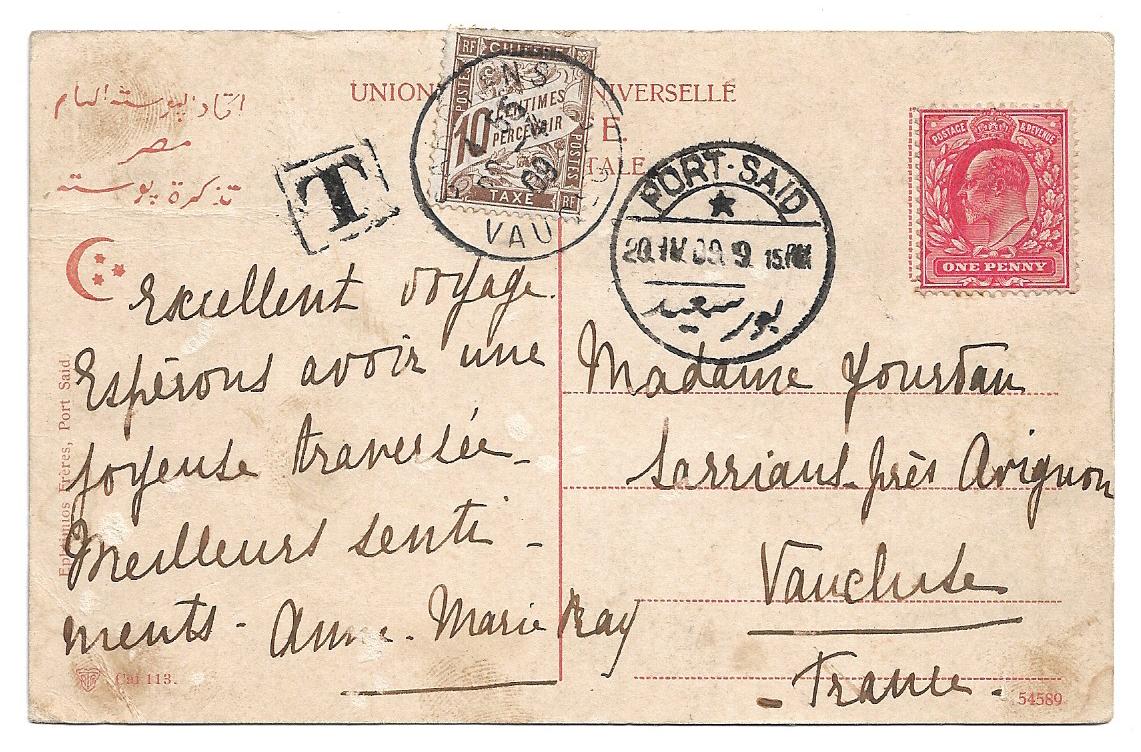 اتحاد البوسته العام
مصر
تذكرة بوسته
UNION
NIVERSELLE
E
TALE
RF CHIFFRE
POSTES
10 CENTIMES
PERCEVOIR
POSTES
TAXE RF
ENS
09
VAU
T
PORT-SAID
20.IV.09.9 15.PM
بور سعيد
POSTAGE & REVENUE
ONE PENNY
Excellent voyage.
Espérons avoir une
joyeuse traversée -
Meilleurs senti -
ments - Anne-Marie Ray
Madame Jourdan
Sarrians près Avignon
Vaucluse
- France -
Ephtimios Frères, Port Said.
Cai 113.
54589